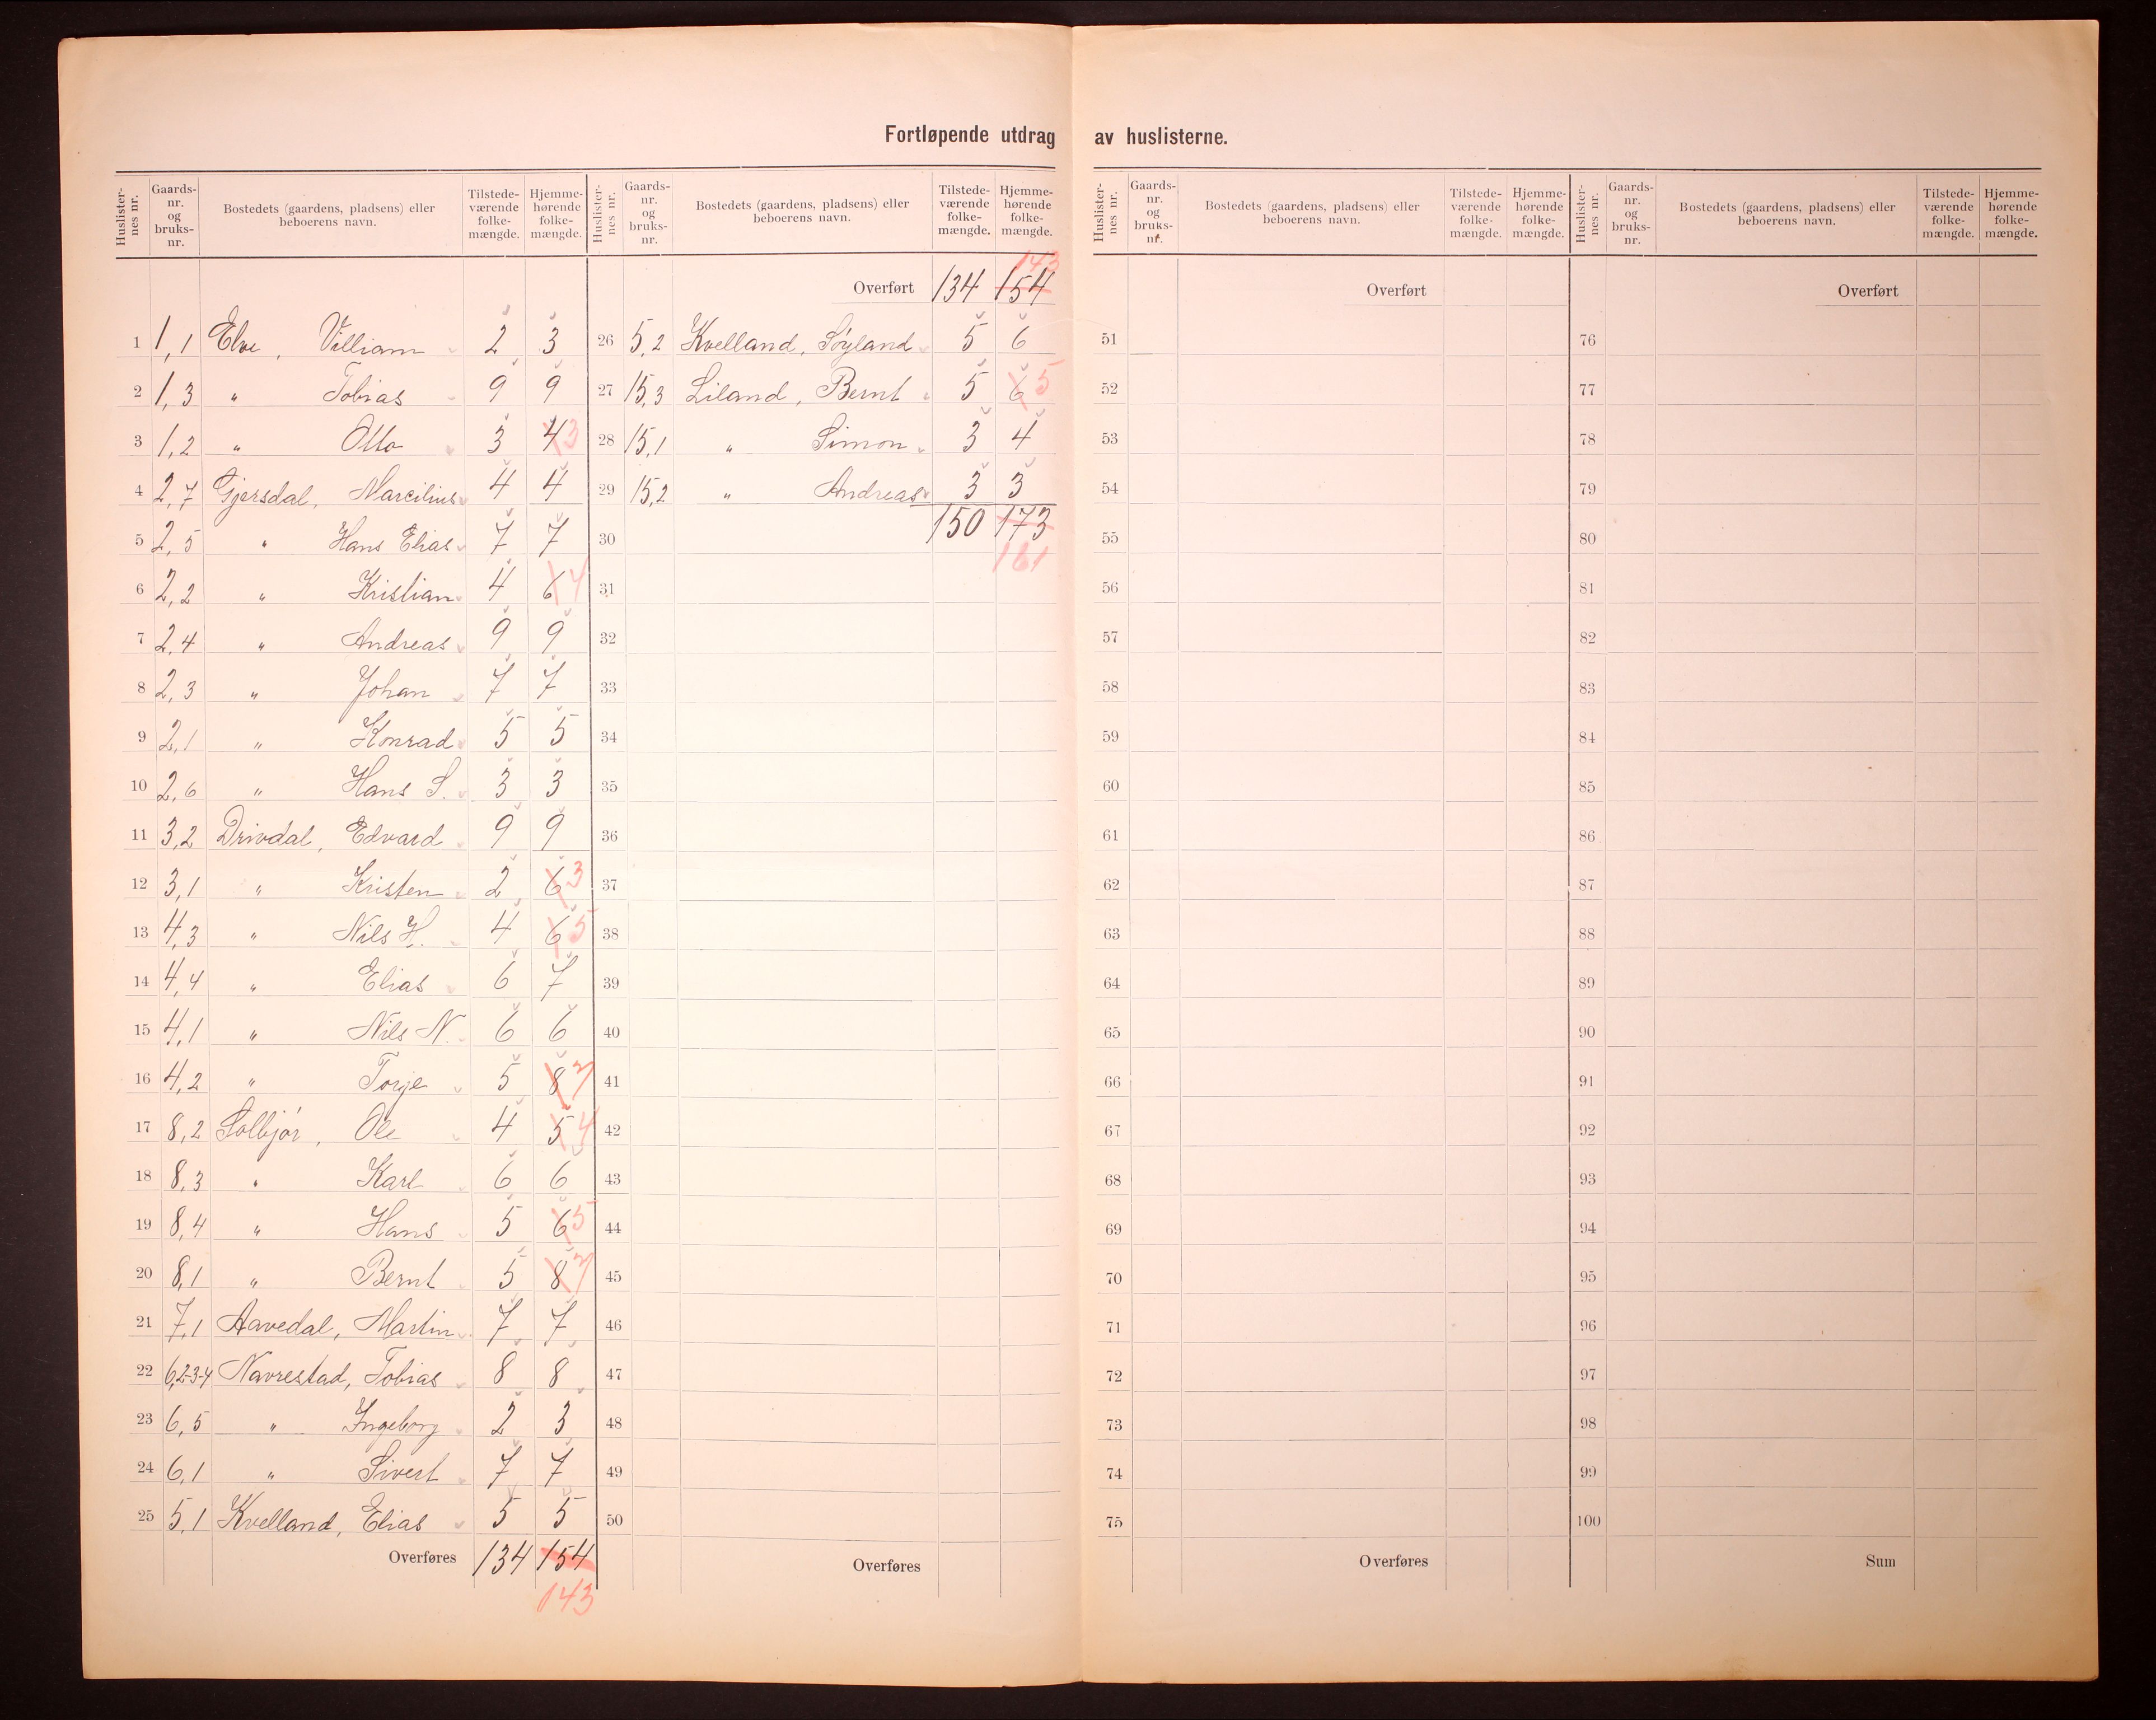 Fortløpende utdrag av huslisterne.
Huslisternes nr. Gaards-nr. og bruks-nr. Bostedets (gaardens, pladsens) eller beboerens navn. Tilstedeværende folkemængde. Hjemmehørende folkemængde.
1 1,1 Elve, Villiam 2 3
2 1,3 " Tobias 9 9
3 1,2 " Otto 3 4 3
4 2,7 Gjersdal, Marcilius 4 4
5 2,5 " Hans Elias 7 7
6 2,2 " Kristian 4 6 4
7 2,4 " Andreas 9 9
8 2,3 " Johan 7 7
9 2,1 " Konrad 5 5
10 2,6 " Hans S. 3 3
11 3,2 Drivdal, Edvard 9 9
12 3,1 " Kristen 2 6 3
13 4,3 " Nils H. 4 6 5
14 4,4 " Elias 6 7
15 4,1 " Nils N. 6 6
16 4,2 " Torje 5 8 7
17 8,2 Solbjør, Ole 4 5 4
18 8,3 " Karl 6 6
19 8,4 " Hans 5 6 5
20 8,1 " Bernt 5 8 7
21 7,1 Aavedal, Martin 7 7
22 6,2-3-4 Navrestad, Tobias 8 8
23 6,5 " Ingeborg 2 3
24 6,1 " Sivert 7 7
25 5,1 Kvelland, Elias 5 5
Overføres 134 154
143
Huslisternes nr. Gaards-nr. og bruks-nr. Bostedets (gaardens, pladsens) eller beboerens navn. Tilstedeværende folkemængde. Hjemmehørende folkemængde.
143
Overført 134 154
26 5,2 Kvelland, Søyland 5 6
27 15,3 Liland, Bernt 5 6 5
28 15,1 " Simon 3 4
29 15,2 " Andreas 3 3
30 150 173
161
31
32
33
34
35
36
37
38
39
40
41
42
43
44
45
46
47
48
49
50
Overføres
Huslisternes nr. Gaards-nr. og bruks-nr. Bostedets (gaardens, pladsens) eller beboerens navn. Tilstedeværende folkemængde. Hjemmehørende folkemængde.
Overført
51
52
53
54
55
56
57
58
59
60
61
62
63
64
65
66
67
68
69
70
71
72
73
74
75
Overføres
Huslisternes nr. Gaards-nr. og bruks-nr. Bostedets (gaardens, pladsens) eller beboerens navn. Tilstedeværende folkemængde. Hjemmehørende folkemængde.
Overført
76
77
78
79
80
81
82
83
84
85
86
87
88
89
90
91
92
93
94
95
96
97
98
99
100
Sum